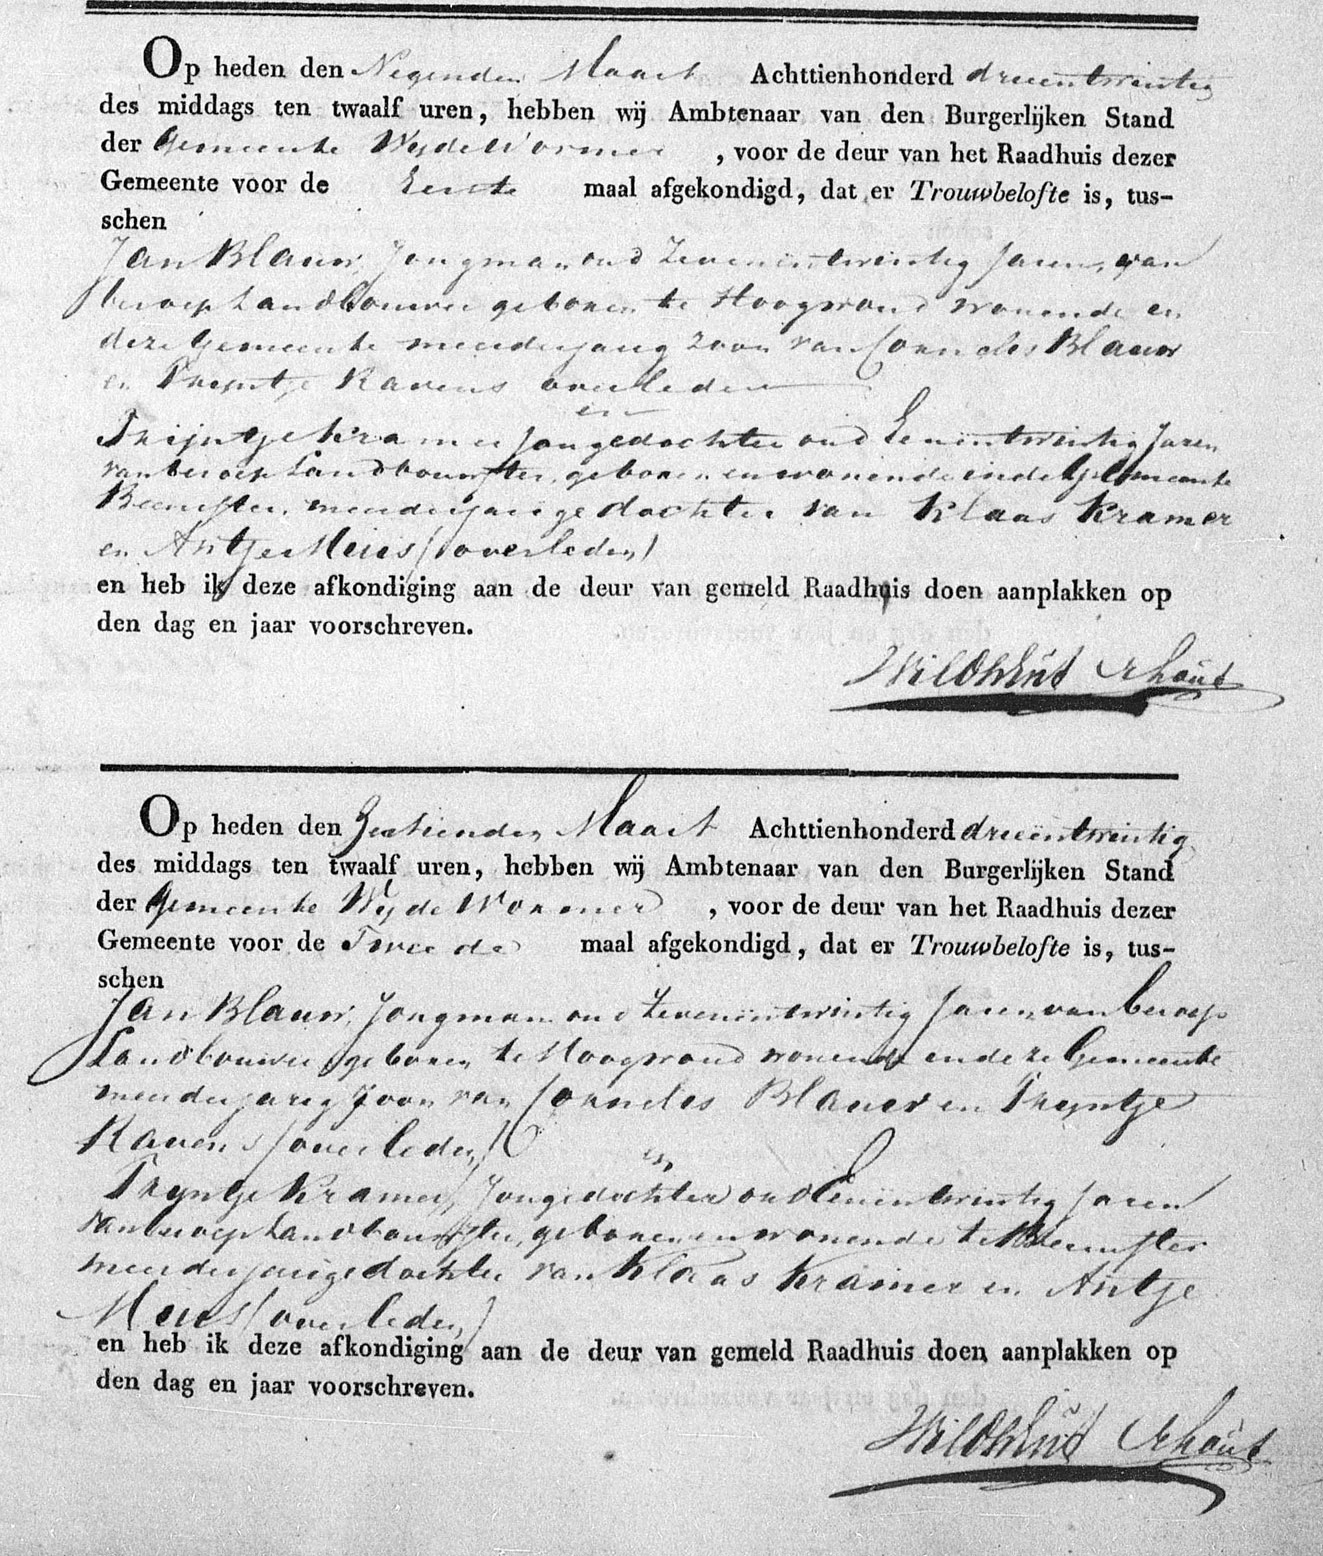 Op heden den Negenden Maart Achttienhonderd drieëntwintig
des middags ten twaalf uren, hebben wij Ambtenaar van den Burgerlijken Stand
der Gemeente WijdeWormer , voor de deur van het Raadhuis dezer
Gemeente voor de Eerste maal afgekondigd, dat er Trouwbelofte is, tus-
schen
Jan Blauw, Jongman oud Zevenentwintig Jaren, van
beroep Landbouwer geboren te Hoogwoud wonende in
deze Gemeente meerderjarig zoon van Cornelis Blauw
en Trijntje Ravens overleden
en
Trijntje Kramer Jongedochter oud Eenëntwintig Jaren
van beroep Landbouwster, geboren en wonende in de Gemeente
Beemster, meerderjarige dochter van Klaas Kramer
en Antje Meies (overleden)
en heb ik deze afkondiging aan de deur van gemeld Raadhuis doen aanplakken op
den dag en jaar voorschreven.
Wildschut
Op heden den Zestienden Maart Achttienhonderd drieëntwintig
des middags ten twaalf uren, hebben wij Ambtenaar van den Burgerlijken Stand
der Gemeente Wijde Wormer , voor de deur van het Raadhuis dezer
Gemeente voor de Tweede maal afgekondigd, dat er Trouwbelofte is, tus-
schen
Jan Blauw, Jongman oud Zevenëntwintig Jaren van beroep
Landbouwer geboren te Hoogwoud wonende in deze Gemeente
meerderjarig Zoon van Cornelis Blauw en Trijntje
Ravens (overleden)
en
Trijntje Kramer, Jongedochter oud Eenëntwintig Jaren
van beroep Landbouwster, geboren en wonende te Beemster
meerderjarige dochter van Klaas Kramer en Antje
Meies (overleden)
en heb ik deze afkondiging aan de deur van gemeld Raadhuis doen aanplakken op
den dag en jaar voorschreven.
Wildschut